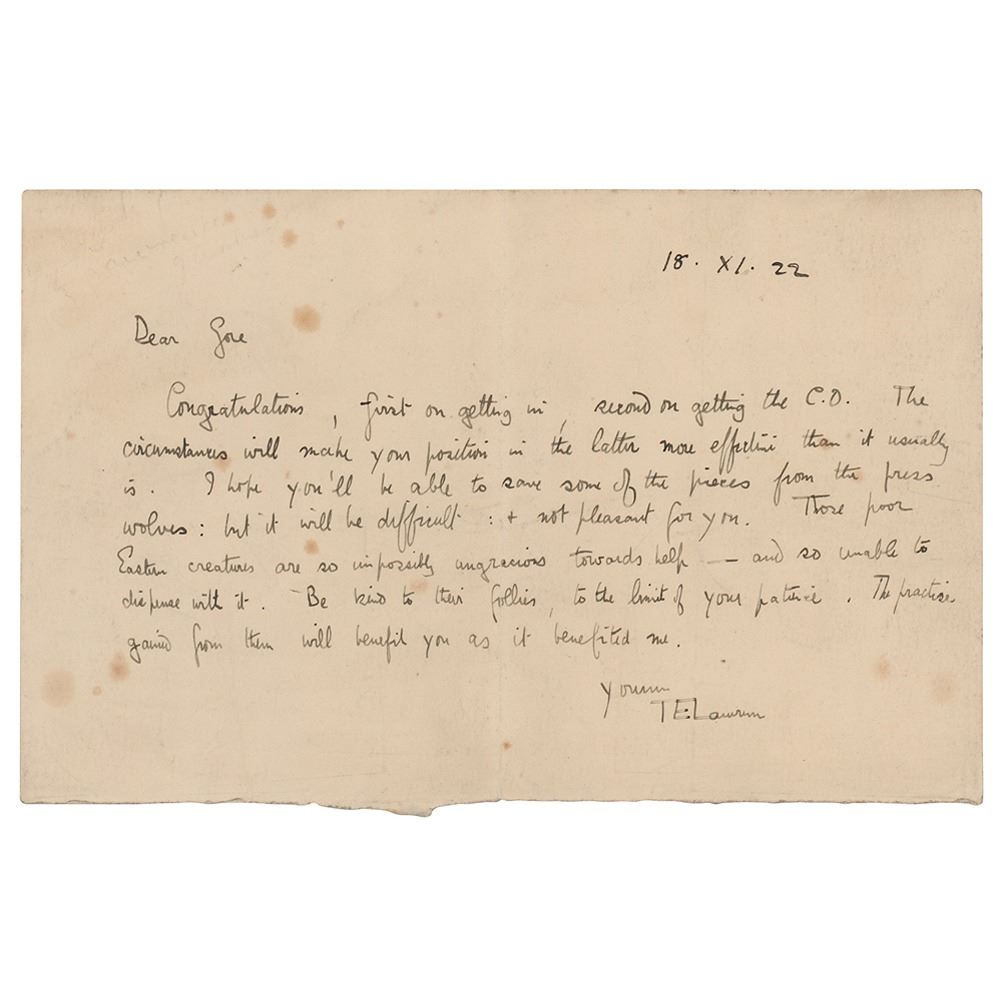 18. XI. 22
Dear Gore
Congratulations, first on getting in, second on getting the C.O. The
circumstances will make your position in the latter more effective than it usually
is. I hope you'll be able to save some of the pieces from the press
wolves: but it will be difficult: + not pleasant for you. Those poor
Eastern creatures are so impossibly ungracious towards help — and so unable to
dispense with it. Be kind to their follies, to the limit of your patience. The practise
gained from them will benefit you as it benefited me.
Yours
T E Lawrence